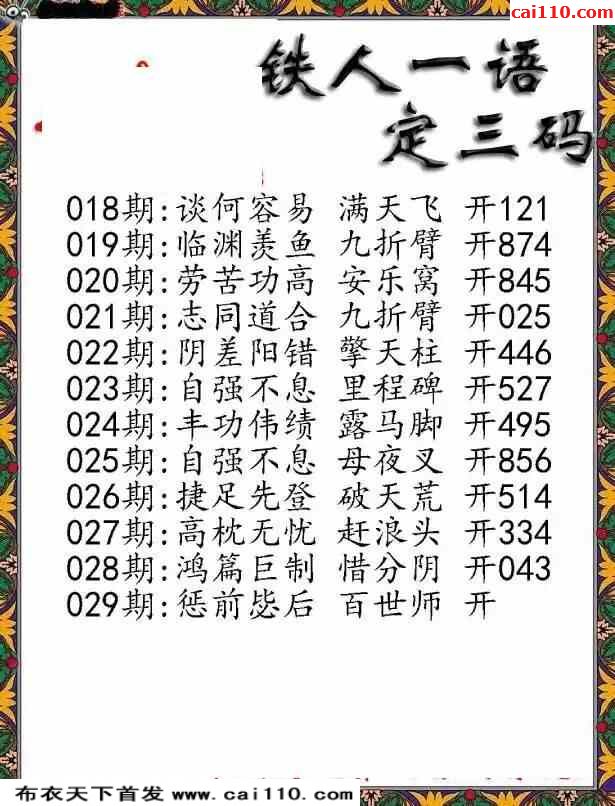 cai110.com
铁人一语
定三码
018期:谈何容易 满天飞 开121
019期:临渊羡鱼 九折臂 开874
020期:劳苦功高 安乐窝 开845
021期:志同道合 九折臂 开025
022期:阴差阳错 擎天柱 开446
023期:自强不息 里程碑 开527
024期:丰功伟绩 露马脚 开495
025期:自强不息 母夜叉 开856
026期:捷足先登 破天荒 开514
027期:高枕无忧 赶浪头 开334
028期:鸿篇巨制 惜分阴 开043
029期:惩前毖后 百世师 开
布衣天下首发 www.cai110.com